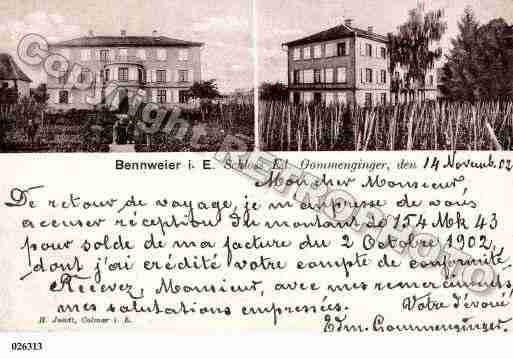 Bennweier i. E. Schloss Ed. Gommenginger, den 14 Novemb. 02
Mon cher Monsieur,
De retour de voyage, je m'empresse de vous
accuser réception du montant de 154 Mk 43
pour solde de ma facture du 2 Octobre 1902,
dont j'ai crédité votre compte de conformité
Recevez, Monsieur, avec mes remerciements,
mes salutations empressées. Votre dévoué
Edm. Gommenginger.
H. Jundt, Colmar i. E.
026313